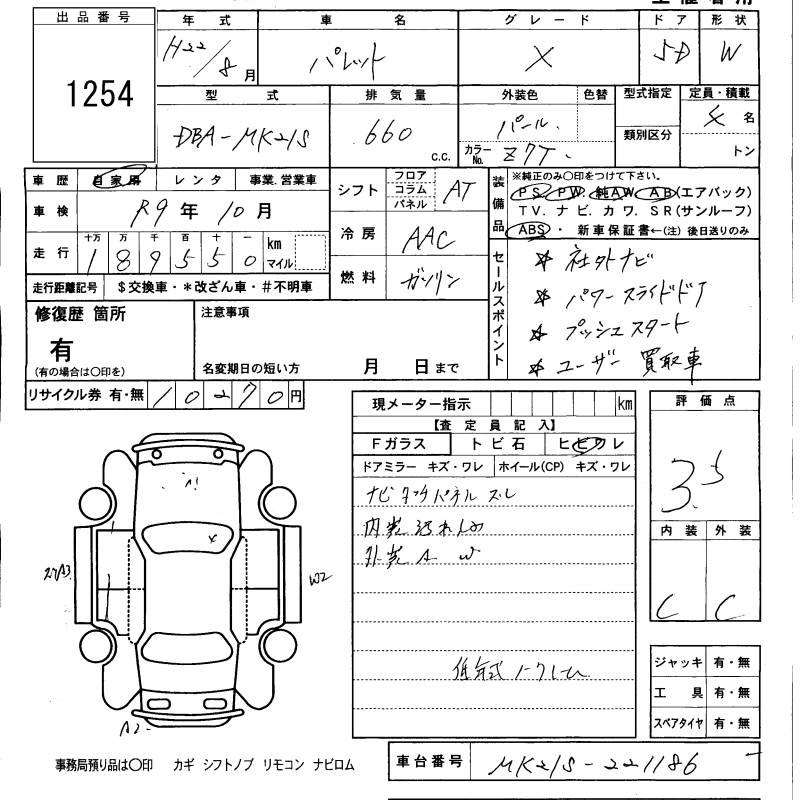 出品番号
1254
年式
H22/8月
車名
パレット
グレード
X
ドア
5D
形状
W
型式
DBA-MK21S
排気量
660
C.C.
外装色
パール
色替
カラーNo.
Z7T
型式指定
類別区分
定員・積載
4名
トン
車歴 自家用 レンタ 事業.営業車
車検
R9年10月
走行
十万 万 千 百 十 一
1 8 9 5 5 0
km
マイル
走行距離記号 $交換車・*改ざん車・#不明車
シフト
フロア
コラム
パネル
AT
冷房
AAC
燃料
ガソリン
装備品
※純正のみ〇印をつけて下さい。
PS. PW. 純AW. AB(エアバック)
TV. ナビ. カワ. SR(サンルーフ)
ABS・ 新車保証書←(注)後日送りのみ
セールスポイント
☆ 社外ナビ
☆ パワースライドドア
☆ プッシュスタート
☆ ユーザー買取車
修復歴 箇所
有
(有の場合は〇印を)
注意事項
名変期日の短い方 月 日まで
リサイクル券 有・無 10270円
現メーター指示 km
【査定員記入】
Fガラス トビ石 ヒビワレ
ドアミラー キズ・ワレ ホイール(CP) キズ・ワレ
ナビタッチパネルズレ
内装汚れ
外装 A W
低年式
評価点
3.5
内装 外装
C C
A1
X
A3
W2
A2
ジャッキ 有・無
工具 有・無
スペアタイヤ 有・無
事務局預り品は〇印 カギ シフトノブ リモコン ナビロム
車台番号
MK21S-221186